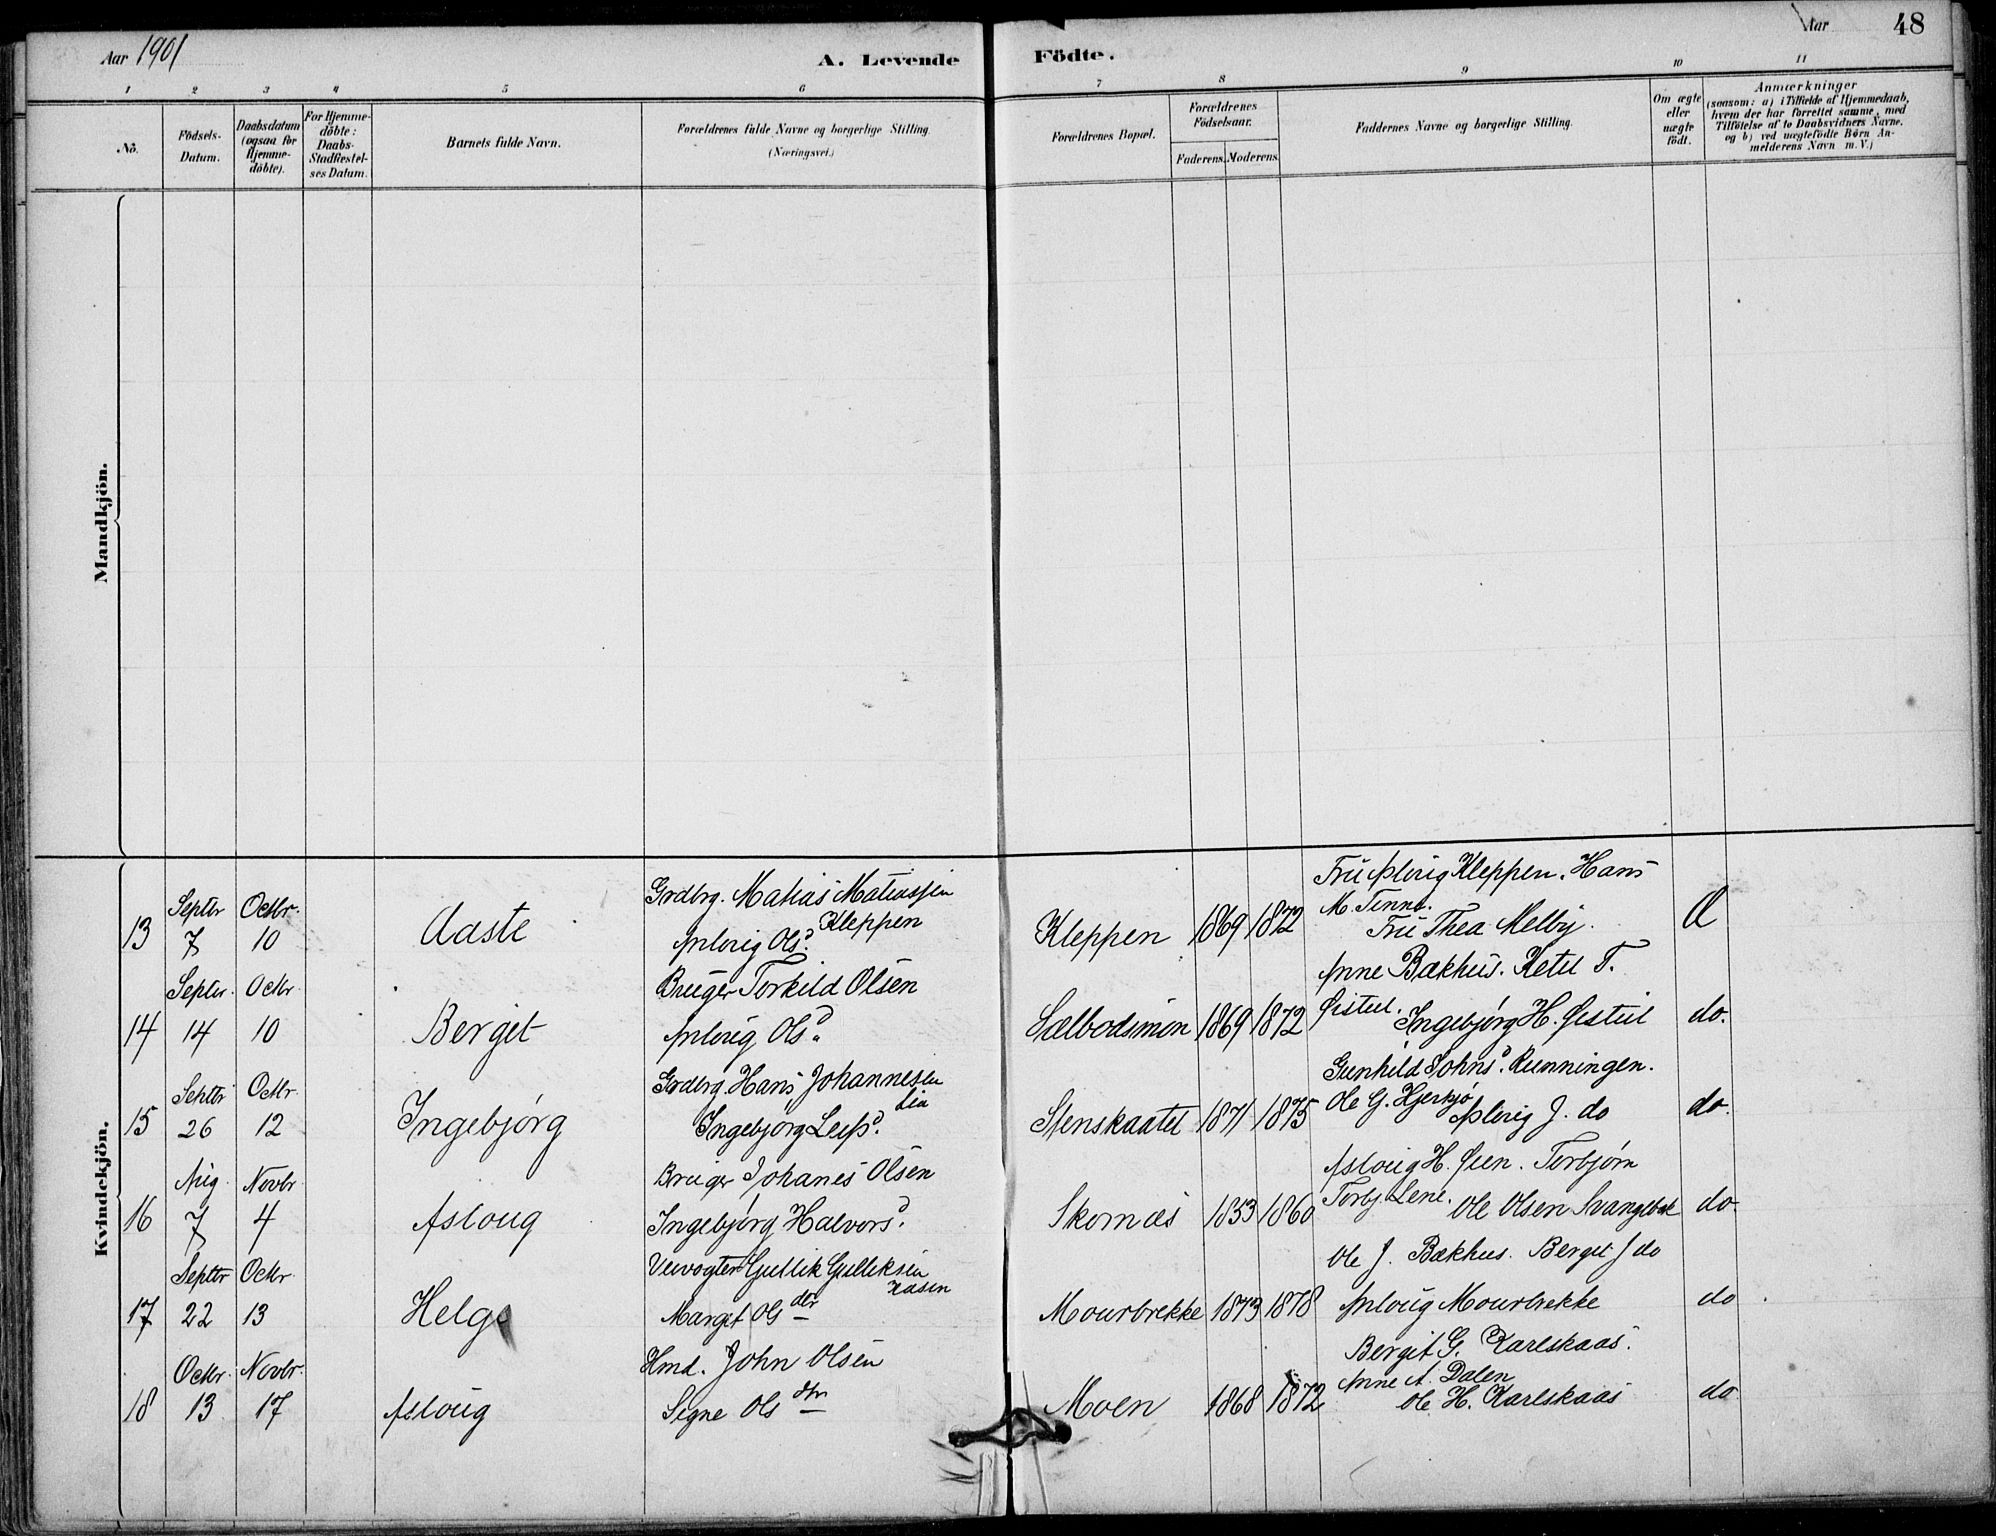 Aar 1901
A. Levende Födte.
Aar 48
1 2 3 4 5 6 7 8 9 10 11
No.
Födsels-Datum.
Daabsdatum (ogsaa for Hjemme-döbte).
For Hjemme-döbte: Daabs-Stadfæstel-ses Datum.
Barnets fulde Navn.
Forældrenes fulde Navne og borgerlige Stilling (Næringsvei.)
Forældrenes Bopæl.
Forældrenes Födselsaar.
Faderens. Moderens.
Faddernes Navne og borgerlige Stilling.
Om ægte eller uægte født.
Anmærkninger
(saasom: a) i Tilfælde af Hjemmedaab,
hvem der har forrettet samme, med
Tilföielse af to Daabsvidners Navne.
og b) ved uægtefödte Börn An-
melderens Navn m. V.)
Mandkjön.
Kvindekjön.
13
Septbr 7
Octbr. 10
Aaste
Grdbrg. Matias Matiassen
Kleppen
Asloug Olsd.
Kleppen 1869 1872
Fru Asloug Kleppen. Hans
M. Tinne.
Fru Thea Melby.
Æ
14
Septbr. 14
Octbr 10
Berget
Bruger Torkild Olsen
Asloug Olsd.
Sælbodsmon 1869 1872
Anne Bækhus. Ketil T.
Øistul.
Ingebjørg H. Øistul
do.
15
Septbr 26
Octbr. 12
Ingebjørg
Grdbrg. Hans Johannesen
Lia
Ingebjørg Leifsd.
Stenskaatet 1871 1875
Gunhild Johnsd. Runningen.
Ole G. Hjerkjø
Asloug J. do
do.
16
Aug. 7
Novbr 4
Asloug
Bruger Johanes Olsen
Ingebjørg Halvorsd.
Skornæs 1853 1860
Asloug H. Øien. Torbjørn
Torbj. Lene.
Ole Olsen Svangebæk
do.
17
Septbr 22
Octbr. 13
Helge
Veivogter Gullik Gulliksen
Aasen
Marget Olsdtr
Mourbrekke 1873 1878
Ole J. Bækhus. Berget J do
Asloug Mourbrekke
do
18
Octbr. 13
Novbr. 17
Asloug
Hmd. John Olsen
Signe Olsdtr
Moen 1868 1872
Bergit G. Karlskaas.
Anne A. Dalen
Ole H. Karlskaas
do